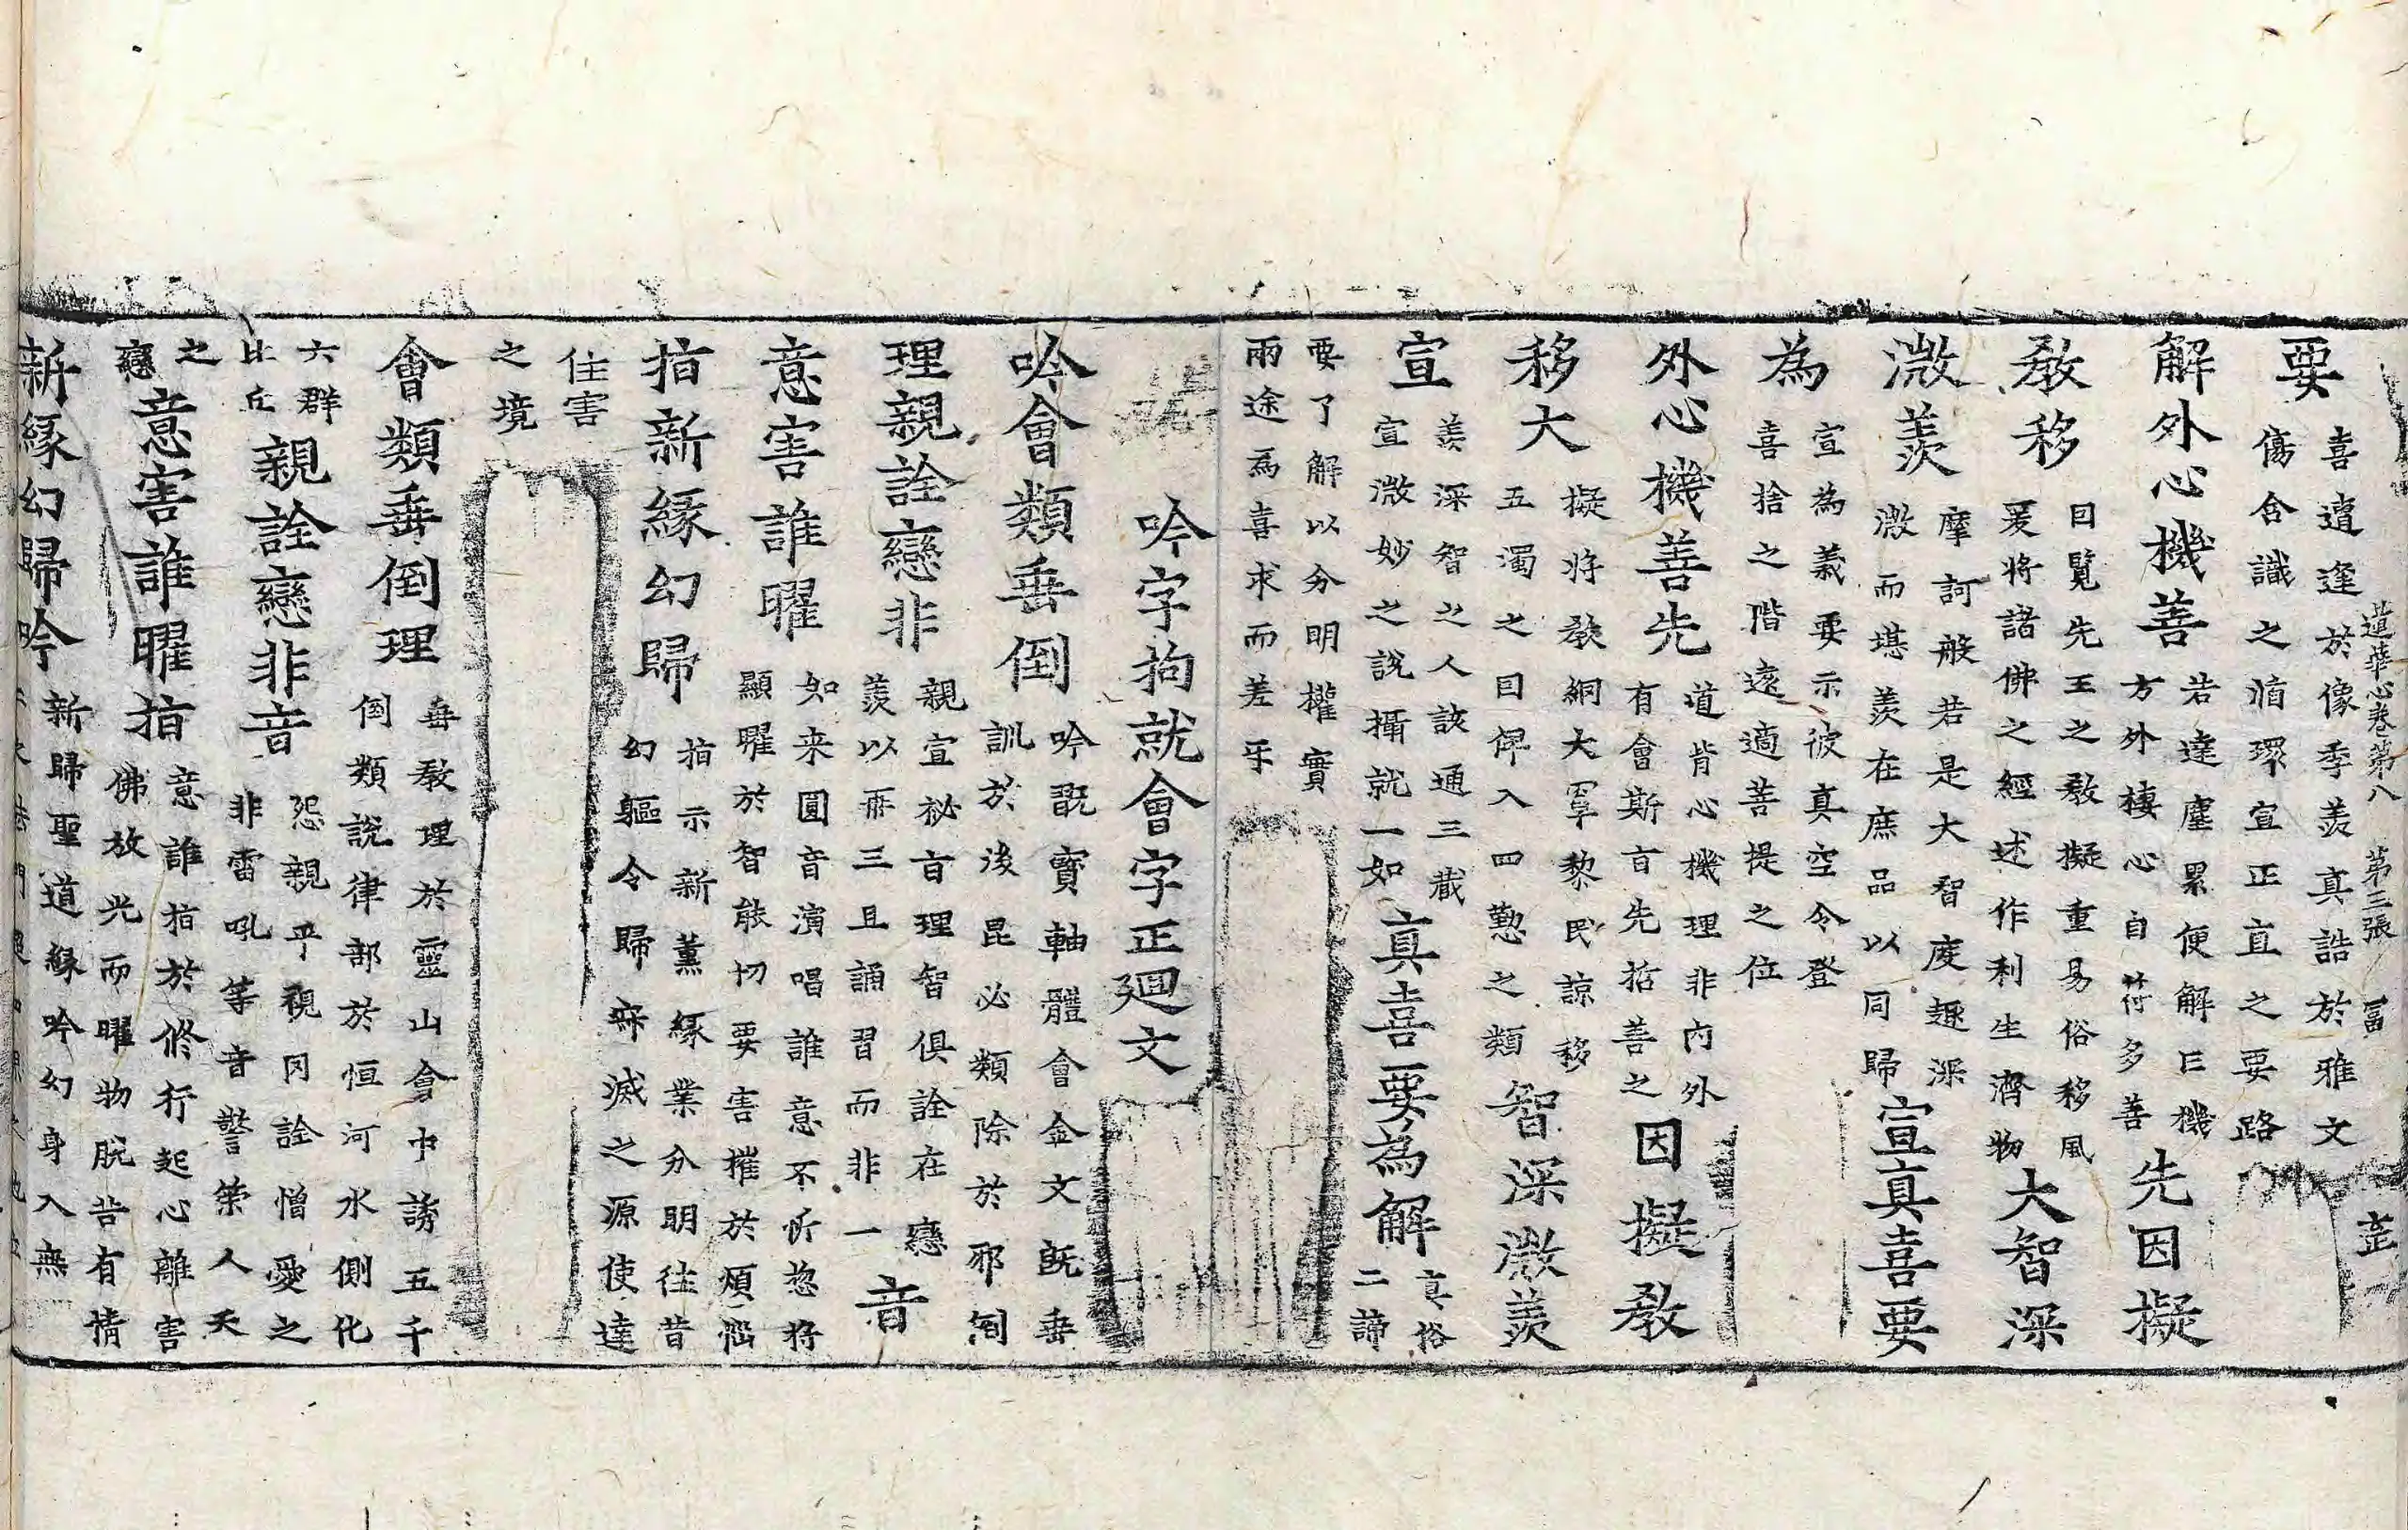 蓮華心卷第八 第三張 冨
要 喜遭逢於像季羡真誥於雅文
傷含識之循環宣正直之要路
解外心機善 若達塵累便解曰機
方外棲心自符多善 先因擬
教移 因覽先王之教擬重易俗移風
爰將諸佛之經述作利生濟物 大智深
溦羡 摩訶般若是大智度趣深
溦而堪羡在庶品以同歸 宣真喜要
為 宣為義要示彼真空令登
喜捨之階遠適菩提之位
外心機善先 道肯心機理非內外
有會斯旨先括善之 因擬教
移大 擬將教網大罩黎民諒移
五濁之因俾入四懃之類 智深溦羡
宣 羡深智之人該通三藏
宣溦妙之說攝就一如 真喜要為解 真俗
二諦
要了解以分明權實
兩途為喜求而差乎
吟字拘就會字正廻文
吟會類垂倒 吟翫寶軸體會金文旣垂
訓於後昆必類除於邪倒
理親詮戀非 親宣祕旨理智俱詮在戀
羡以再三且誦習而非一 音
意害誰曜 如来圓音演唱誰意不忻惣將
顯曜於智敢切要害摧於煩惱
指新緣幻歸 指示新薰緣業分明往昔
幻軀令歸寂滅之源使達
住害
之境
會類垂倒理 垂教理於靈山會中誘五千
倒類說律部於恒河水側化
六群
比丘 親詮戀非音 怨親平視同詮憎愛之
非雷吼等音警榮人天
之
戀 意害誰曜指 意誰指於修行起心離害
佛放光而曜物脫苦有情
新緣幻歸吟 新歸聖道緣吟幻身入無